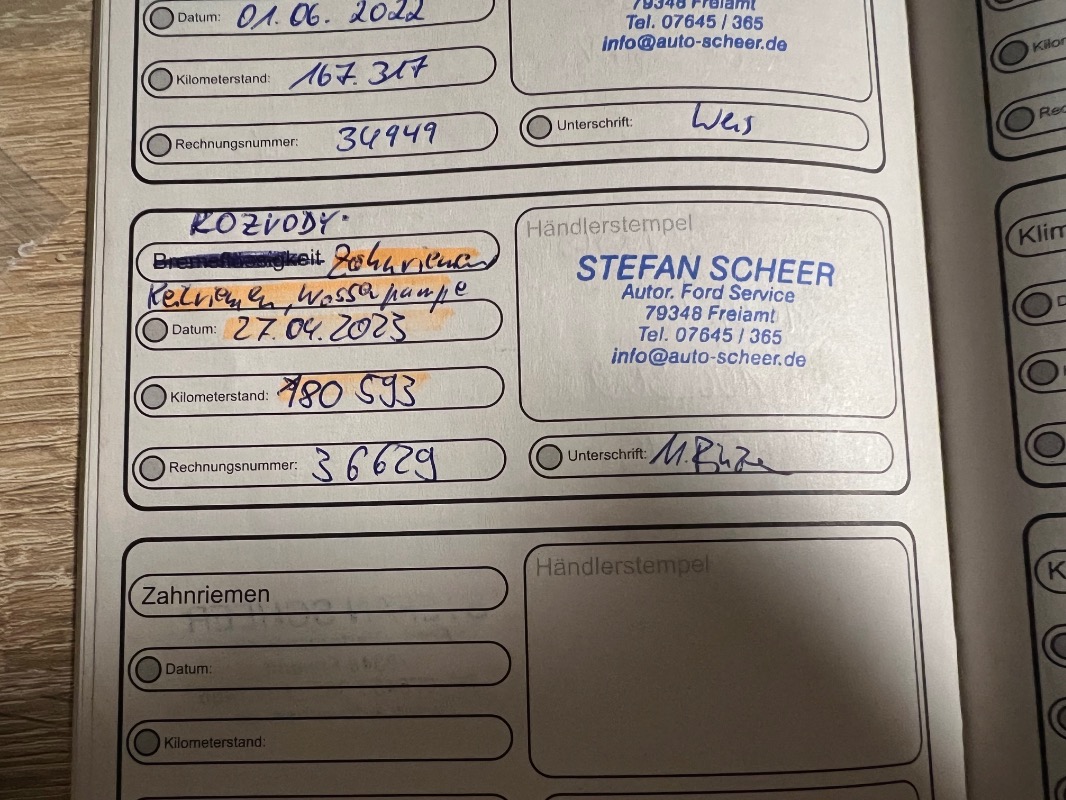 Datum: 01.06.2022
79348 Freiamt
Tel. 07645 / 365
info@auto-scheer.de
Kilometerstand: 167.317
Rechnungsnummer: 34949
Unterschrift: Weis
ROZVODY.
Bremsflüssigkeit Zahnriemen
Keilriemen, Wasserpumpe
Datum: 27.04.2023
Kilometerstand: 180 593
Rechnungsnummer: 36629
Händlerstempel
STEFAN SCHEER
Autor. Ford Service
79348 Freiamt
Tel. 07645 / 365
info@auto-scheer.de
Unterschrift:
Zahnriemen
Datum:
Kilometerstand:
Händlerstempel